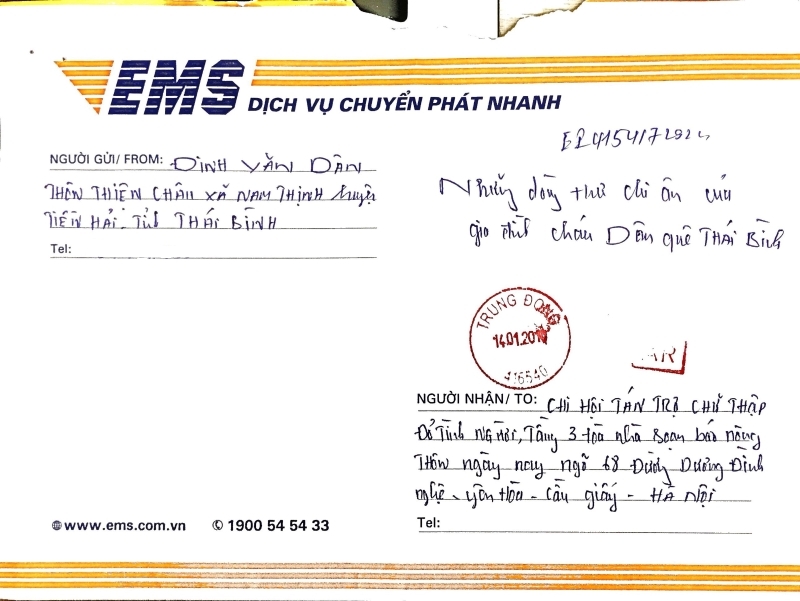 EMS DỊCH VỤ CHUYỂN PHÁT NHANH
NGƯỜI GỬI/ FROM: ĐINH VĂN DÂN
THÔN THIÊN CHÂU XÃ NAM THỊNH huyện
TIỀN HẢI - Tỉnh THÁI BÌNH
Tel:
Những dòng thư chi ân của
gia đình cháu Dân quê THÁI BÌNH
TRUNG ĐỒNG
14.01.20
416540
AR
NGƯỜI NHẬN/ TO: CHI HỘI TÁN TRỢ CHỮ THẬP
ĐỎ TÌNH NGƯỜI, TẦNG 3 tòa nhà soạn báo nông
THÔN ngày nay ngõ 68 Đường Dương Đình
nghệ - yên Hòa - Cầu giấy - HÀ NỘI
Tel:
www.ems.com.vn 1900 54 54 33